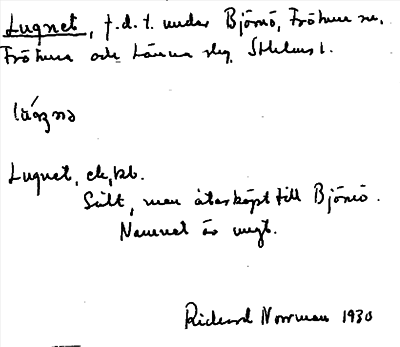 Lugnet, f.d.t. under Björnö, Frötuna sn,
Frötuna och Länna slg, Sthlms l.
Lugnet, ek, kb.
Sålt, men återköpt till Björnö.
Namnet är ungt.
Rickard Norrman 1930